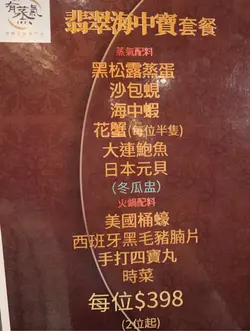 有蒸氣
翡翠海中寶套餐
蒸氣配料
黑松露蒸蛋
沙包蜆
海中蝦
花蟹(每位半隻)
大連鮑魚
日本元貝
(冬瓜盅)
火鍋配料
美國桶蠔
西班牙黑毛豬腩片
手打四寶丸
時菜
每位$398
(2位起)